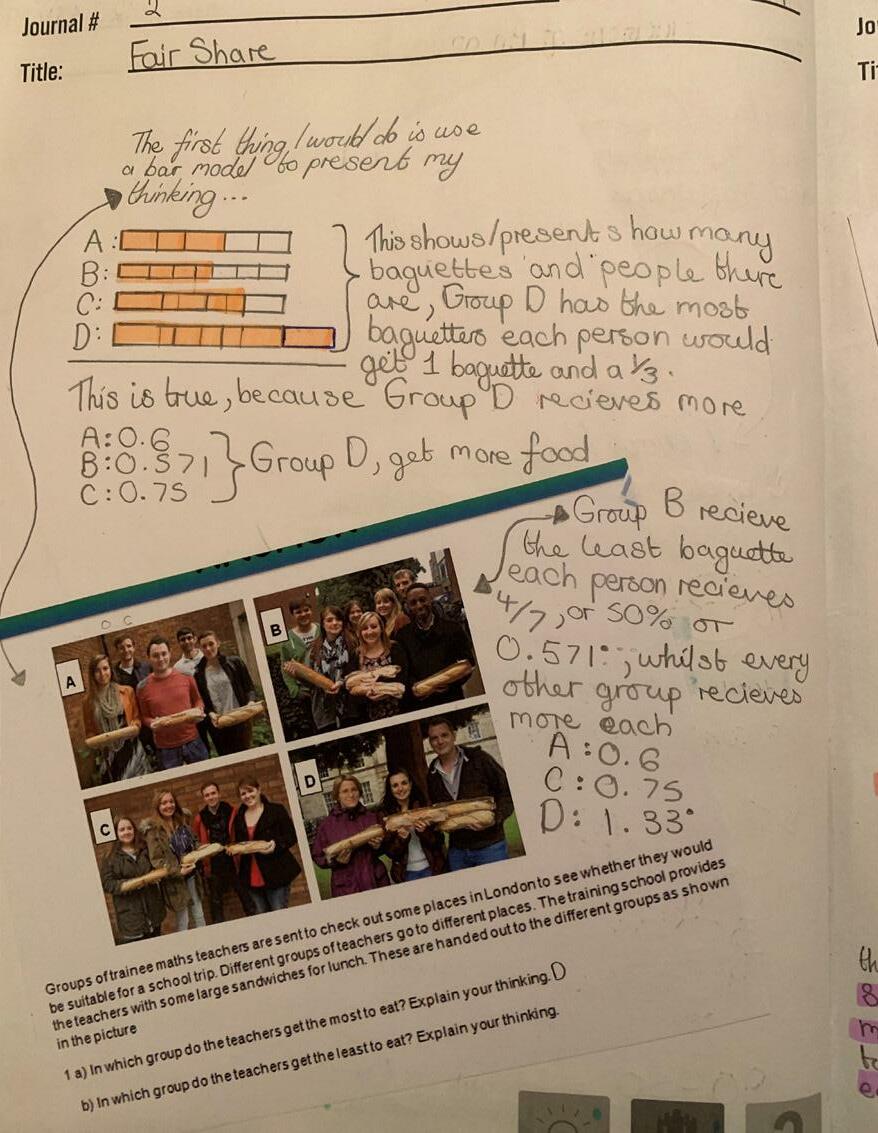 Journal # 2
Jo
Title: Fair Share
Ti
The first thing I would do is use
a bar model to present my
thinking...
A:
B:
C:
D:
This shows/presents how many
baguettes and people there
are, Group D has the most
baguetters each person would
get 1 baguette and a 1/3.
This is true, because Group D recieves more
A: 0.6
B: 0.571
C: 0.75
Group D, get more food
Group B recieve
the least baguette
each person recieves
4/7, or 50% or
0.571°, whilst every
other group recieves
more each
A: 0.6
C: 0.75
D: 1.33°
A
B
C
D
Groups of trainee maths teachers are sent to check out some places in London to see whether they would
be suitable for a school trip. Different groups of teachers go to different places. The training school provides
the teachers with some large sandwiches for lunch. These are handed out to the different groups as shown
in the picture
1 a) In which group do the teachers get the most to eat? Explain your thinking. D
b) In which group do the teachers get the least to eat? Explain your thinking.